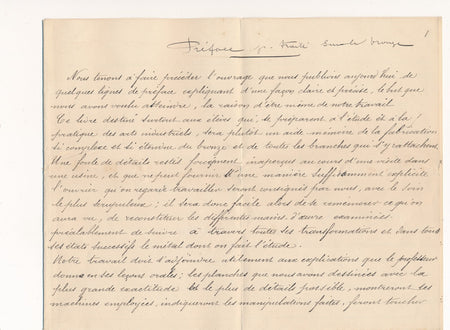 1
Préface p. traité sur le bronze
Nous tenons à faire précéder l'ouvrage que nous publions aujourd'hui de
quelques lignes de préface expliquant d'une façon claire et précise, le but que
nous avons voulu atteindre, la raison d'être même de notre travail.
Ce livre destiné surtout aux élèves qui se préparent à l'étude et à la
pratique des arts industriels, sera plutôt un aide mémoire de la fabrication
si complexe et si étendue du bronze et de toutes les branches qui s'y rattachent.
Une foule de détails restés forcément inaperçus au cours d'une visite dans
une usine, et que ne peut fournir d'une manière suffisamment explicite
l'ouvrier qu'on regarde travailler seront consignés par nous, avec le soin
le plus scrupuleux; il sera donc facile alors de se remémorer ce qu'on
aura vu, de reconstituer les différentes mains d'œuvre examinées
préalablement de suivre à travers toutes ses transformations et dans tous
ses états successifs le métal dont on fait l'étude.
Notre travail doit s'adjoindre utilement aux explications que le professeur
donne en ses leçons orales; les planches que nous avons dessinées avec la
plus grande exactitude et le plus de détails possible, montreront les
machines employées, indiqueront les manipulations faites, feront toucher